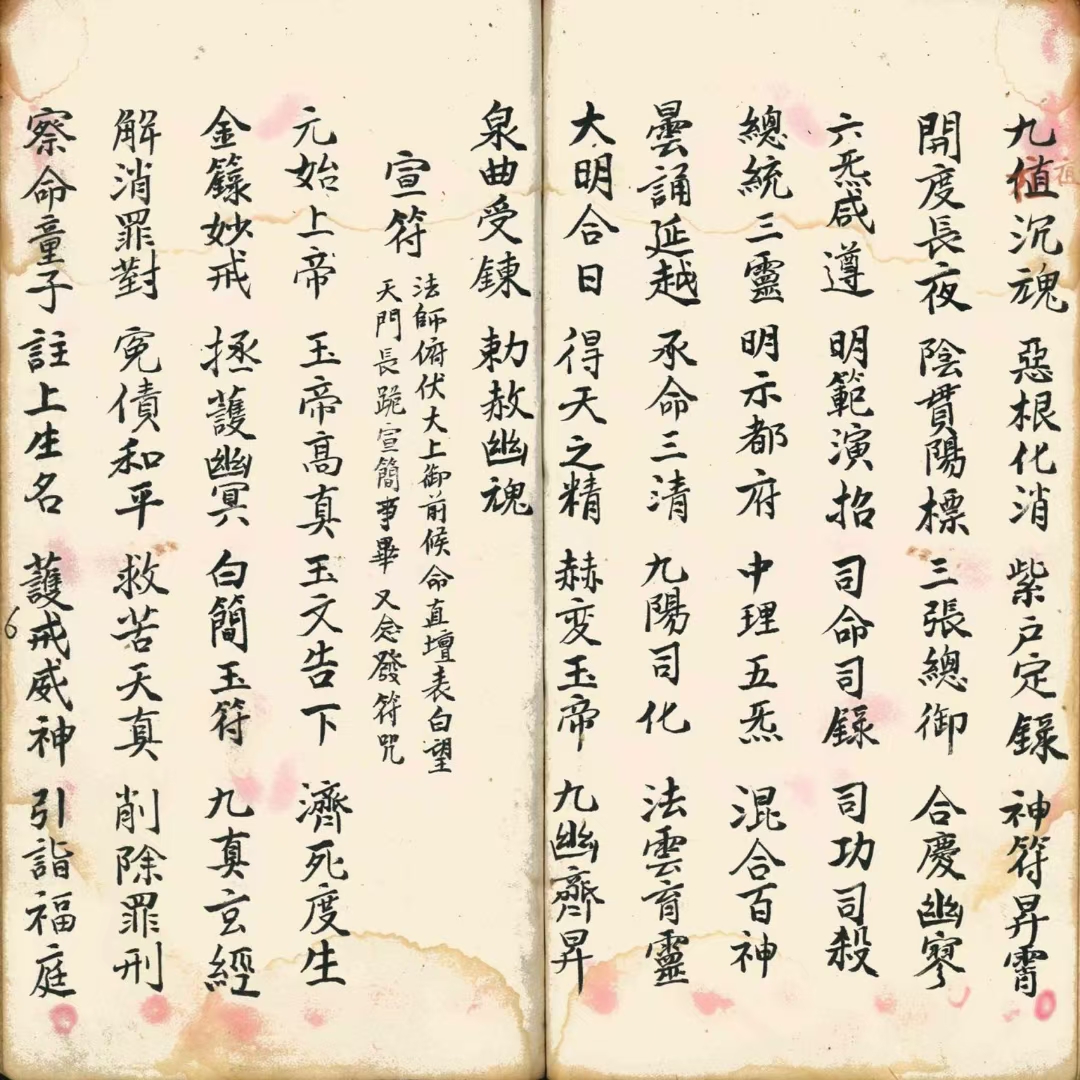 九值沉魂 惡根化消 紫户定錄 神符昇霄
開度長夜 陰貫陽標 三張總御 合慶幽寥
六炁咸遵 明範演招 司命司錄 司功司殺
總統三靈 明示都府 中理五炁 混合百神
曇誦延越 承命三清 九陽司化 法雲育靈
大明合日 得天之精 赫变玉帝 九幽齊昇
泉曲受鍊 勅赦幽魂
宣符
法師俯伏大上御前候命直壇表白望
天門長跪宣簡事畢又念發符咒
元始上帝 玉帝高真 玉文告下 濟死度生
金籙妙戒 拯護幽冥 白簡玉符 九真玄經
解消罪對 冤債和平 救苦天真 削除罪刑
察命童子 註上生名 護戒威神 引詣福庭
6